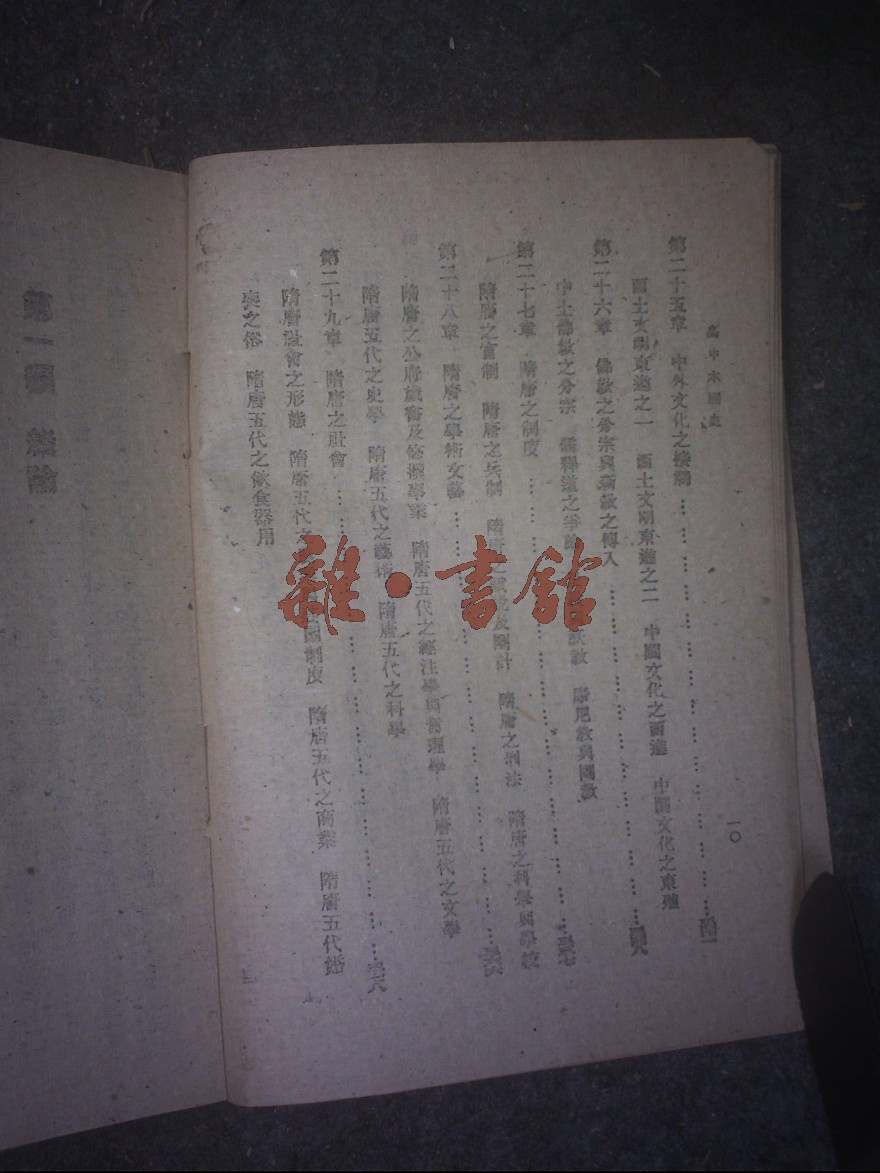 高中本國史
第二十五章　中外文化之接觸 …………………………
西土文明東漸之一　西土文明東漸之二　中國文化之西漸　中國文化之東殖
第二十六章　佛教之分宗與新教之傳入 …………………………
中土佛教之分宗　儒釋道之爭　祅教　摩尼教與回教
第二十七章　隋唐之制度 …………………………
隋唐之官制　隋唐之兵制　隋唐之　及　計　隋唐之刑法　隋唐之科舉與學校
第二十八章　隋唐之學術文藝 …………………………
隋唐之公府藏書及修撰事業　隋唐五代之經注學與音理學　隋唐五代之文學
隋唐五代之史學　隋唐五代之藝術　隋唐五代之科學
第二十九章　隋唐之社會 …………………………
隋唐社會之形態　隋唐五代之　制度　隋唐五代之商業　隋唐五代婚
喪之俗　隋唐五代之飲食器用
一〇
第一編　緒論
雜·書館